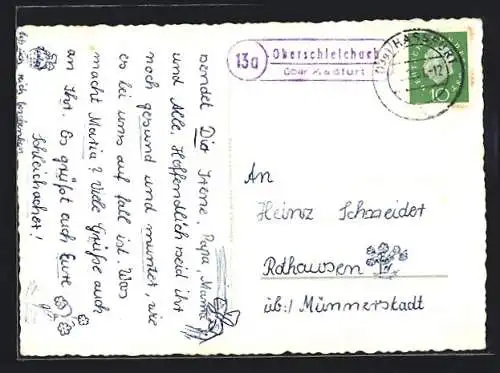 13a
Oberschleichach
über Haßfurt
(13a) HASSFURT
-12
10
An
Heinz Schneider
Rothausen
üb:/ Münnerstadt
sendet Dir Irene, Papa, Mama
und Alle. Hoffendlich seid ihr
noch gesund und munter, wie
es bei uns auch fall ist. Was
macht Maria? Viele Grüße auch
an Ihr. Es grüßt auch Eure
Schleichacher!